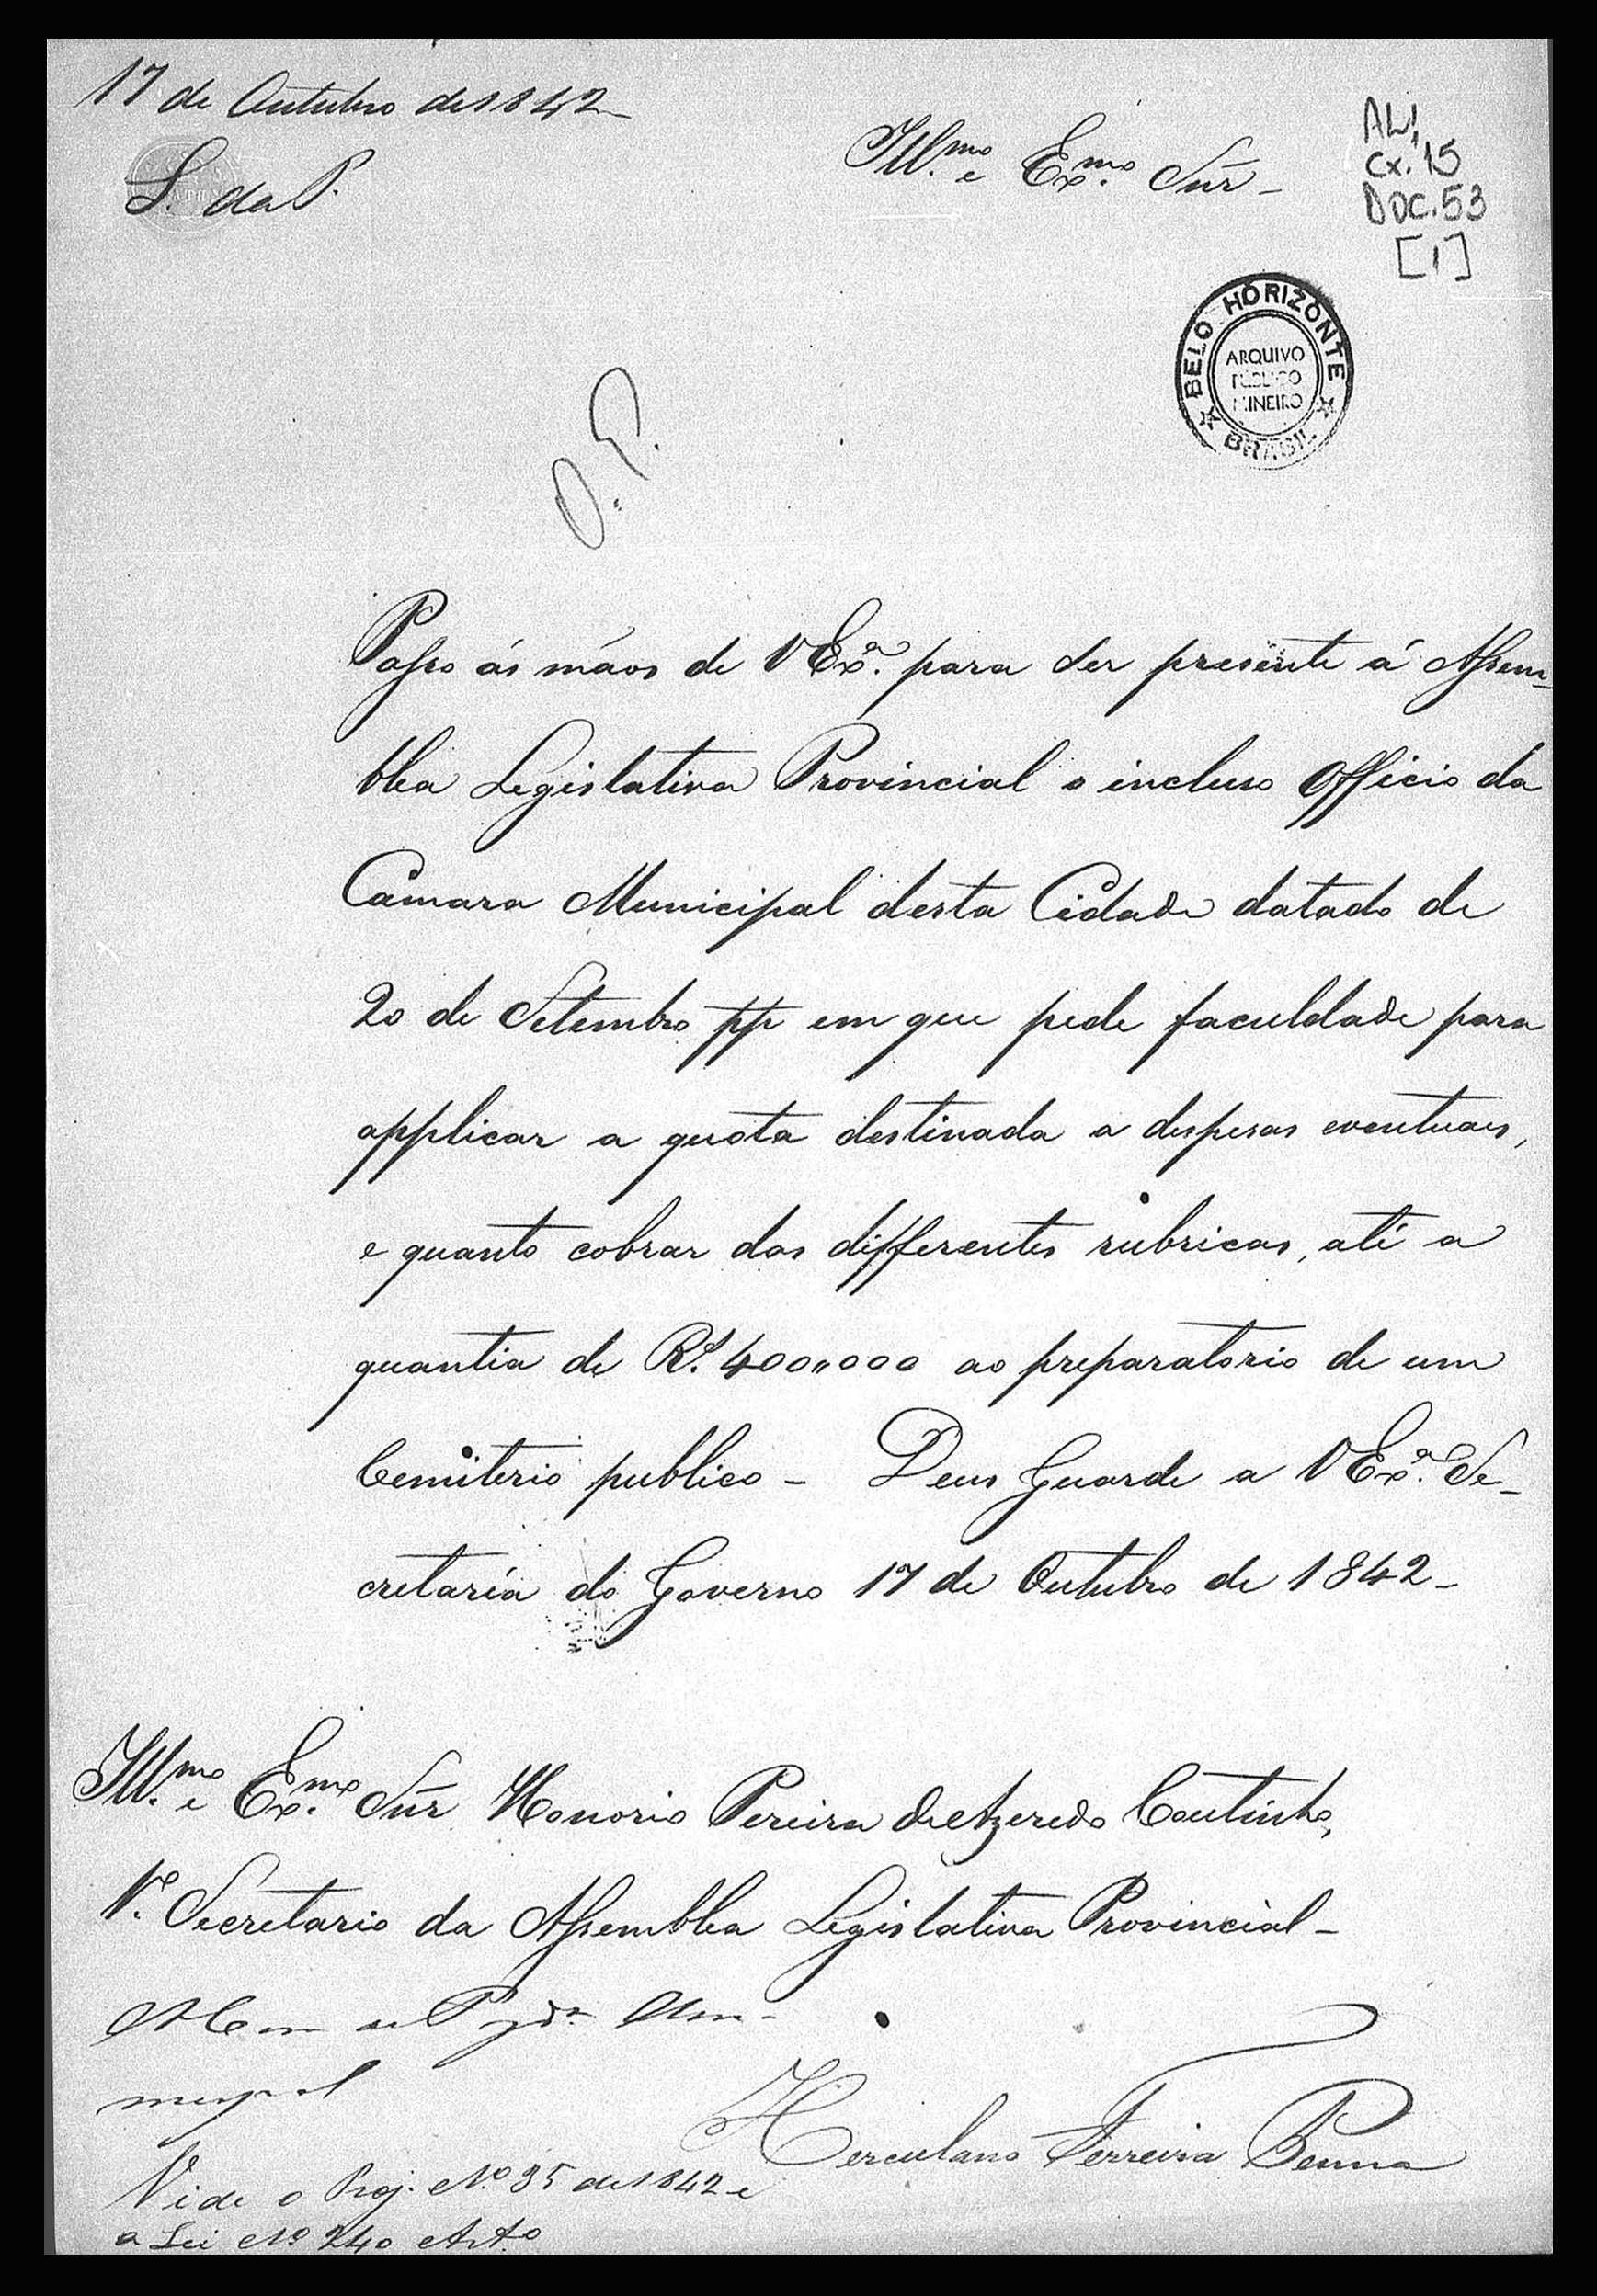 17 de Outubro de 1842
S. da P.
Ill.mo e Ex.mo Snr -
AL1,
Cx. 15
DOC. 53
[1]
BELO HORIZONTE
ARQUIVO
PUBLICO
MINEIRO
BRASIL
O. P.
Passo ás mãos de V Ex.a para ser presente á Assem-
blea Legislativa Provincial o incluso Officio da
Camara Municipal desta Cidade datado de
20 de Setembro pp em que pede faculdade para
applicar a quota destinada a despesas eventuais,
e quanto cobrar das differentes rubricas, até a
quantia de R.s 400,,000 ao preparatorio de um
Cemiterio publico - Deus Guarde a V Ex.a Se-
cretaria do Governo 17 de Outubro de 1842 -
Ill.mo e Ex.mo Snr Honorio Pereira de Azeredo Coutinho,
1.o Secretario da Assemblea Legislativa Provincial -
Herculano Ferreira Penna
Vide o Proj. No 35 de 1842 e
a Lei No 240 Art.o